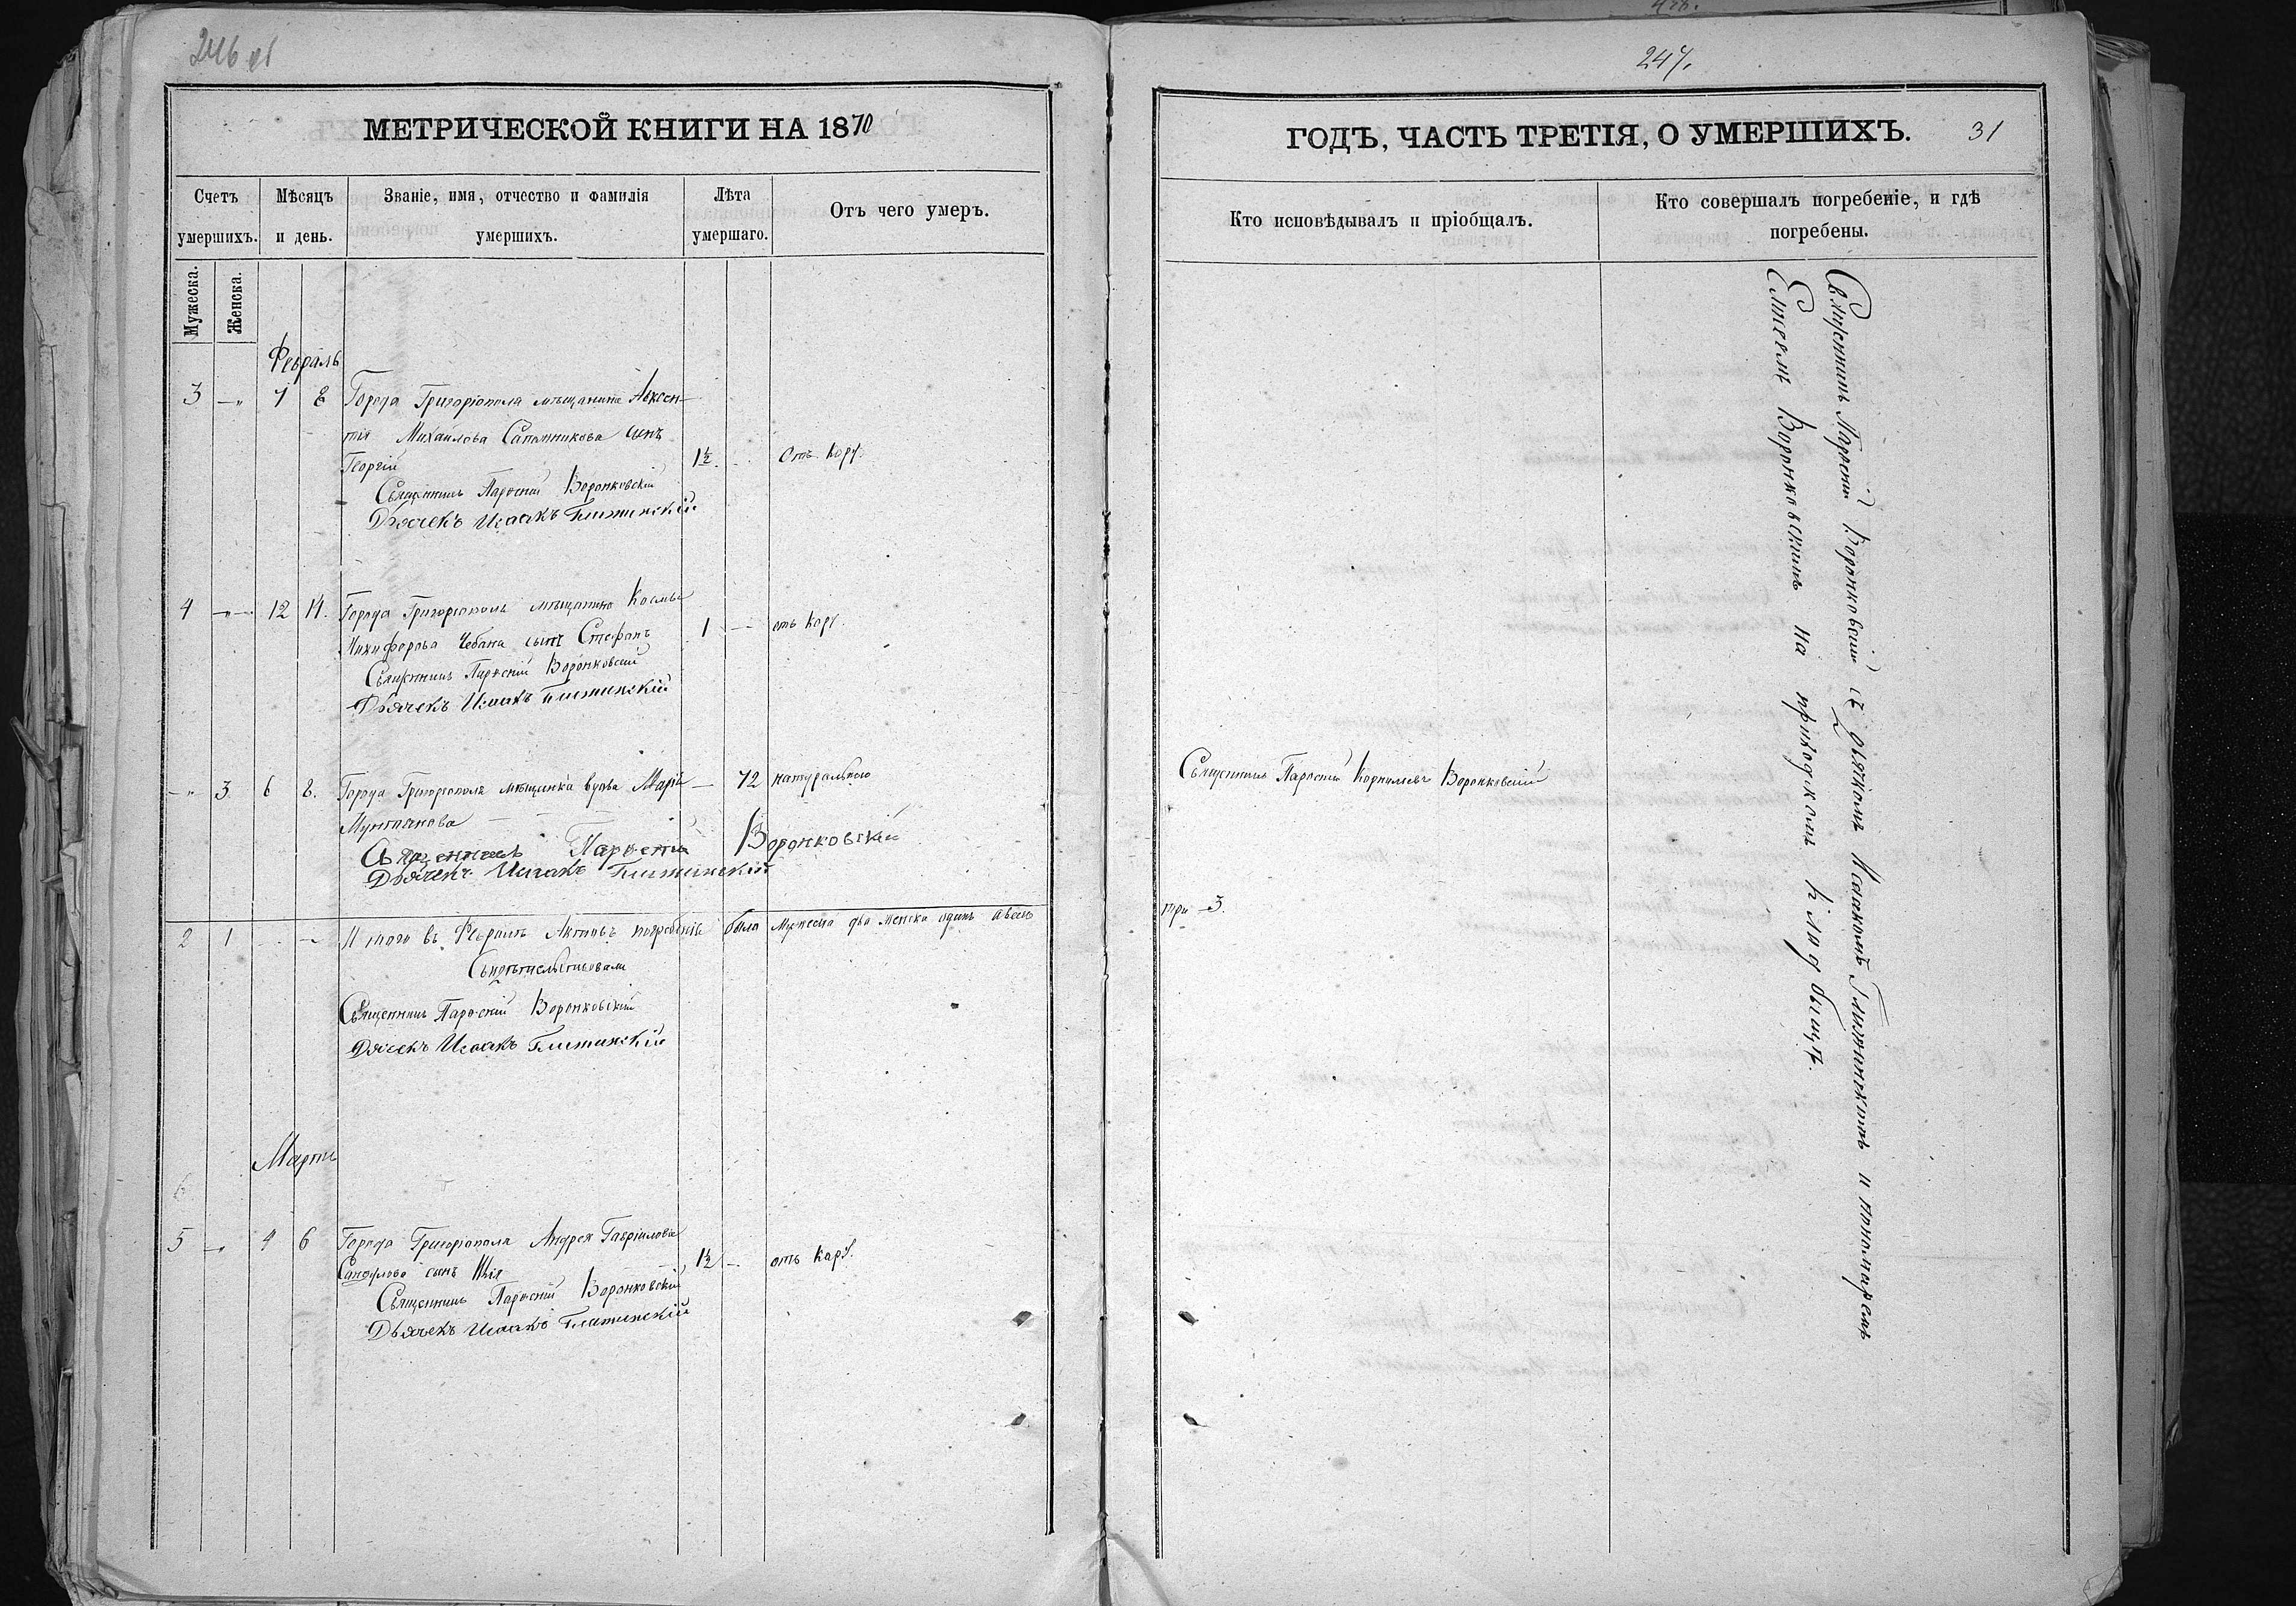 246 об
МЕТРИЧЕСКОЙ КНИГИ НА 1870
Счетъ умершихъ.
Мѣсяцъ и день.
Званіе, имя, отчество и фамилія умершихъ.
Лѣта умершаго.
Отъ чего умеръ.
Мужеска.
Женска.
Февраль
3 — 7 8 Города Григоріополя мѣщанина Авксен-
тія Михайлова Сапожникова сынъ
Георгій 1½ Отъ кору.
Священникъ Парѳеній Воронковскій
Дьячекъ Исаакъ
4 — 12 14. Города Григоріополя мѣщанина Космы
Никифорова Чебана сынъ Стефанъ 1 — отъ кору.
Священникъ Парѳеній Воронковскій
Дьячекъ Исаакъ
— 3 6 8. Города Григоріополя мѣщанка вдова Марія — 72 натурально
Мунтянова
Священникъ Парѳеній Воронковскій
Дьячекъ Исаакъ
2 1 Итого въ Февралѣ Актовъ погребенія было Мужеска два женска одинъ а всѣхъ
Свидѣтельствовали
Священникъ Парѳеній Воронковскій
Дячекъ Исаакъ
Мартъ
6
5 — 4 6 Города Григоріополя Андрея Гавріилова
сынъ Илія 1½ — отъ кору.
Священникъ Парѳеній Воронковскій
Дьячекъ Исаакъ
247.
ГОДЪ, ЧАСТЬ ТРЕТІЯ, О УМЕРШИХЪ. 31
Кто исповѣдывалъ и пріобщалъ.
Кто совершалъ погребеніе, и гдѣ погребены.
Священникъ Парѳеній Корнилевъ Воронковскій
три — 3.
Священникъ Парѳеній Воронковскій съ дьячкомъ Исаакомъ и пономаремъ
Елисеемъ Воронковскимъ на приходскомъ кладбищѣ.